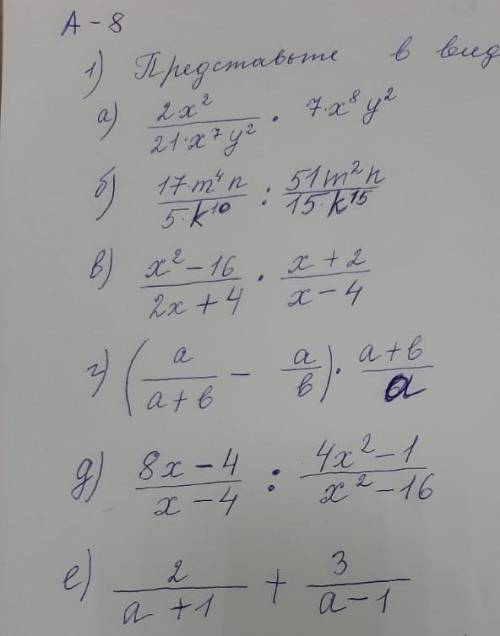 А-8
1) Представьте в вид
а) 2x²/(21·x⁷y²) · 7·x⁸y²
б) 17·m⁴n/(5·k¹⁰) : 51m²n/(15·k¹⁵)
в) (x²-16)/(2x+4) · (x+2)/(x-4)
г) (a/(a+b) - a/b) · (a+b)/a
д) (8x-4)/(x-4) : (4x²-1)/(x²-16)
е) 2/(a+1) + 3/(a-1)